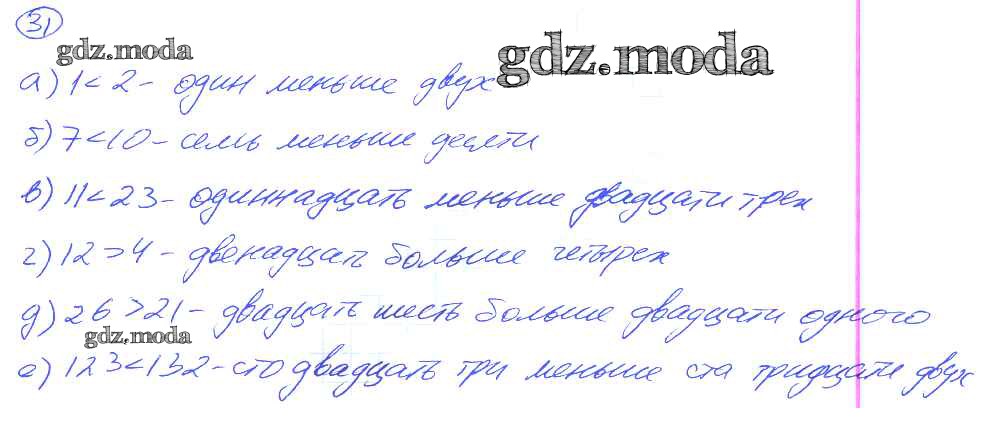 31
gdz.moda
gdz.moda
а) 1<2 - один меньше двух
б) 7<10 - семь меньше десяти
в) 11<23 - одиннадцать меньше двадцати трех
г) 12>4 - двенадцать больше четырех
д) 26>21 - двадцать шесть больше двадцати одного
gdz.moda
е) 123<132 - сто двадцать три меньше ста тридцати двух